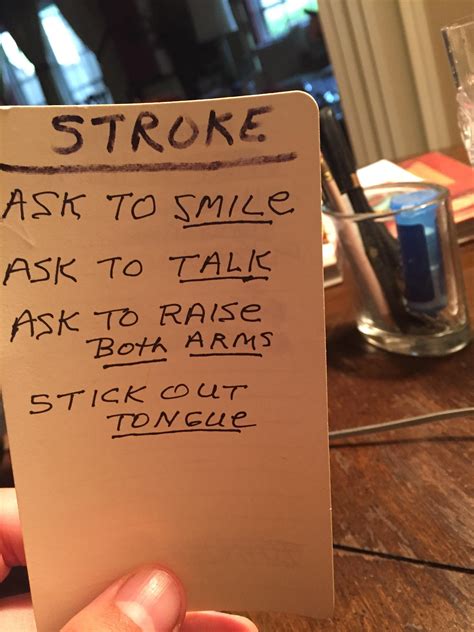 STROKE
ASK TO SMILe
ASK TO TALK
ASK TO RAISe
BOTh ARMS
STICK OUT
TONGUe